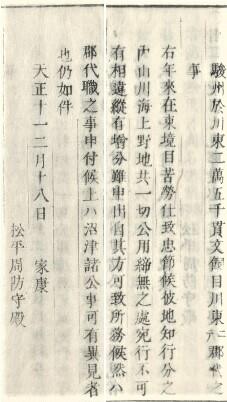 駿州於川東二萬五千貫文御目川東二郡代之
事
右年來在東境目苦勞仕致忠節候彼地知行分之
內山川海上野地共一切公用締無之處宛行不可
有相違縱有增分雖申出自其方可致所務候然ハ
郡代職之事申付候上ハ沼津諸公事可有異見者
也仍如件
天正十一二月十八日　家康
松平周防守殿